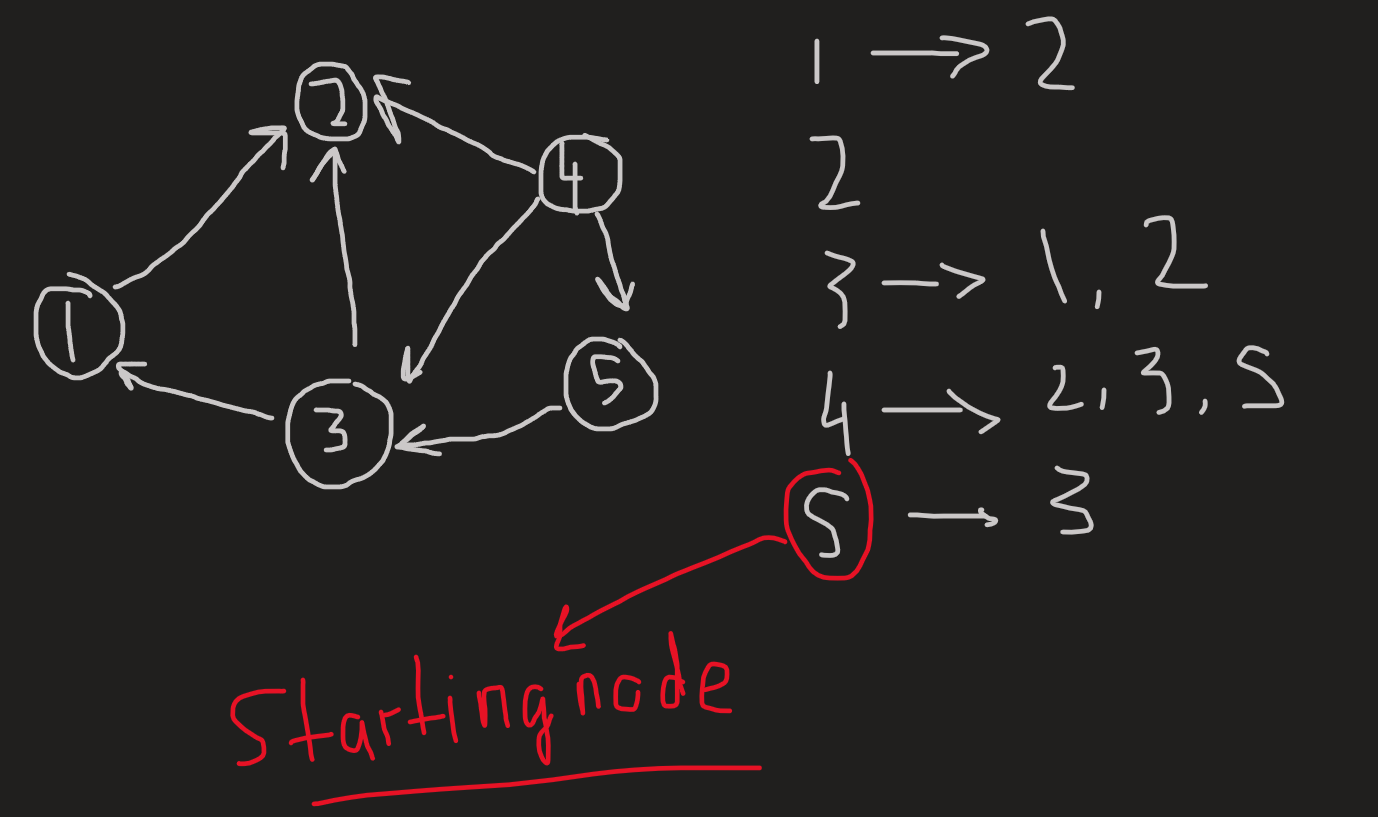 2
4
1
3
5
1 → 2
2
3 → 1, 2
4 → 2, 3, 5
5 → 3
Starting node